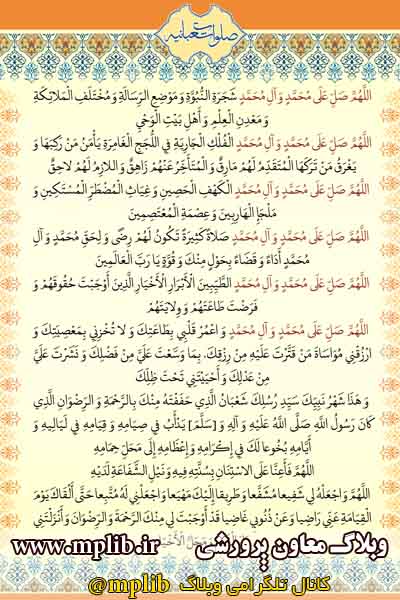 صلوات شعبانیه
اللَّهُمَّ صَلِّ عَلَى مُحَمَّدٍ وَ آلِ مُحَمَّدٍ شَجَرَةِ النُّبُوَّةِ وَ مَوْضِعِ الرِّسَالَةِ وَ مُخْتَلَفِ الْمَلائِكَةِ
وَ مَعْدِنِ الْعِلْمِ وَ أَهْلِ بَيْتِ الْوَحْيِ
اللَّهُمَّ صَلِّ عَلَى مُحَمَّدٍ وَ آلِ مُحَمَّدٍ الْفُلْكِ الْجَارِيَةِ فِي اللُّجَجِ الْغَامِرَةِ يَأْمَنُ مَنْ رَكِبَهَا وَ
يَغْرَقُ مَنْ تَرَكَهَا الْمُتَقَدِّمُ لَهُمْ مَارِقٌ وَ الْمُتَأَخِّرُ عَنْهُمْ زَاهِقٌ وَ اللازِمُ لَهُمْ لاحِقٌ
اللَّهُمَّ صَلِّ عَلَى مُحَمَّدٍ وَ آلِ مُحَمَّدٍ الْكَهْفِ الْحَصِينِ وَ غِيَاثِ الْمُضْطَرِّ الْمُسْتَكِينِ وَ
مَلْجَإِ الْهَارِبِينَ وَ عِصْمَةِ الْمُعْتَصِمِينَ
اللَّهُمَّ صَلِّ عَلَى مُحَمَّدٍ وَ آلِ مُحَمَّدٍ صَلاةً كَثِيرَةً تَكُونُ لَهُمْ رِضًى وَ لِحَقِّ مُحَمَّدٍ وَ آلِ
مُحَمَّدٍ أَدَاءً وَ قَضَاءً بِحَوْلٍ مِنْكَ وَ قُوَّةٍ يَا رَبَّ الْعَالَمِينَ
اللَّهُمَّ صَلِّ عَلَى مُحَمَّدٍ وَ آلِ مُحَمَّدٍ الطَّيِّبِينَ الْأَبْرَارِ الْأَخْيَارِ الَّذِينَ أَوْجَبْتَ حُقُوقَهُمْ وَ
فَرَضْتَ طَاعَتَهُمْ وَ وِلايَتَهُمْ
اللَّهُمَّ صَلِّ عَلَى مُحَمَّدٍ وَ آلِ مُحَمَّدٍ وَ اعْمُرْ قَلْبِي بِطَاعَتِكَ وَ لا تُخْزِنِي بِمَعْصِيَتِكَ وَ
ارْزُقْنِي مُوَاسَاةَ مَنْ قَتَّرْتَ عَلَيْهِ مِنْ رِزْقِكَ، بِمَا وَسَّعْتَ عَلَيَّ مِنْ فَضْلِكَ وَ نَشَرْتَ عَلَيَّ
مِنْ عَدْلِكَ وَ أَحْيَيْتَنِي تَحْتَ ظِلِّكَ
وَ هَذَا شَهْرُ نَبِيِّكَ سَيِّدِ رُسُلِكَ شَعْبَانُ الَّذِي حَفَفْتَهُ مِنْكَ بِالرَّحْمَةِ وَ الرِّضْوَانِ الَّذِي
كَانَ رَسُولُ اللَّهِ صَلَّى اللَّهُ عَلَيْهِ وَ آلِهِ وَ [سَلَّمَ] يَدْأَبُ فِي صِيَامِهِ وَ قِيَامِهِ فِي لَيَالِيهِ وَ
أَيَّامِهِ بُخُوعا لَكَ فِي إِكْرَامِهِ وَ إِعْظَامِهِ إِلَى مَحَلِّ حِمَامِهِ
اللَّهُمَّ فَأَعِنَّا عَلَى الاسْتِنَانِ بِسُنَّتِهِ فِيهِ وَ نَيْلِ الشَّفَاعَةِ لَدَيْهِ
اللَّهُمَّ وَ اجْعَلْهُ لِي شَفِيعا مُشَفَّعا وَ طَرِيقا إِلَيْكَ مَهْيَعا وَ اجْعَلْنِي لَهُ مُتَّبِعا حَتَّى أَلْقَاكَ يَوْمَ
الْقِيَامَةِ عَنِّي رَاضِيا وَ عَنْ ذُنُوبِي غَاضِيا قَدْ أَوْجَبْتَ لِي مِنْكَ الرَّحْمَةَ وَ الرِّضْوَانَ وَ أَنْزَلْتَنِي
وبلاگ معاون پرورشی www.mplib.ir
کانال تلگرامی وبلاگ mplib@